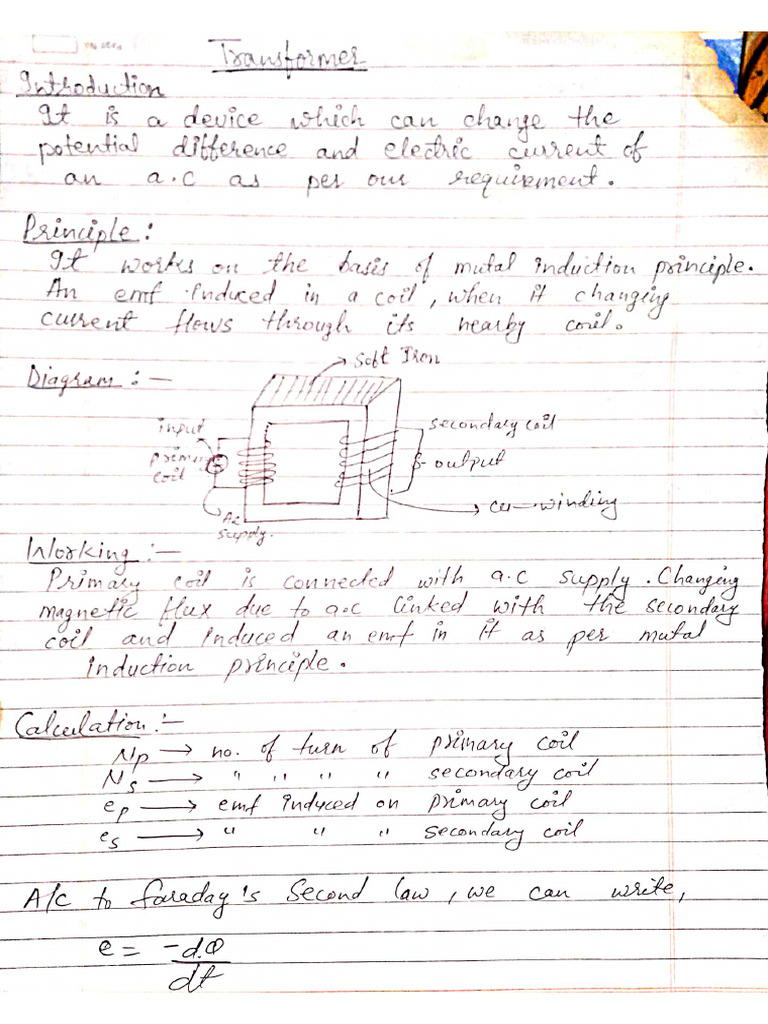 Transformer
Introduction
It is a device which can change the
potential difference and electric current of
an a.c as per our requirement.
Principle :
It works on the basis of mutal induction principle.
An emf induced in a coil, when it changing
current flows through its nearby coil.
Diagram :-
Soft Iron
input
primary
coil
Ac
supply.
secondary coil
output
cu-winding
Working :-
Primary coil is connected with a.c supply. Changing
magnetic flux due to a.c linked with the secondary
coil and induced an emf in it as per mutal
induction principle.
Calculation :-
Np → no. of turn of primary coil
Ns → " " " " secondary coil
ep → emf induced on primary coil
es → " " " secondary coil
A/c to faraday's Second law, we can write,
e = -dΦ
dt